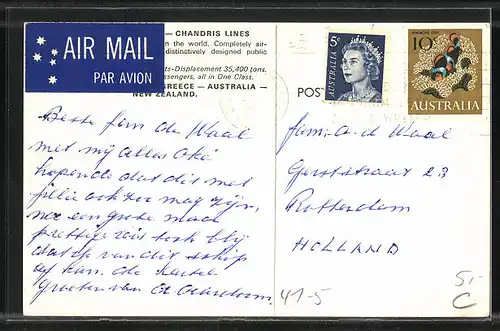 — CHANDRIS LINES
in the world. Completely air-
distinctively designed public
ts-Displacement 35,400 tons.
ssengers, all in One Class.
GREECE — AUSTRALIA —
NEW ZEALAND.
AIR MAIL
PAR AVION
5c
10c
AUSTRALIA
POST
Beste fam de Waal
met mij alles Oké
hopende dat dit met
jullie ook zoo mag zijn,
na een grote maar
prettige reis toch blij
dat van dit schip
af kan. de
Groeten van
fam. A d Waal
Gerststraat 23
Rotterdam
HOLLAND
41-5
5.-
C